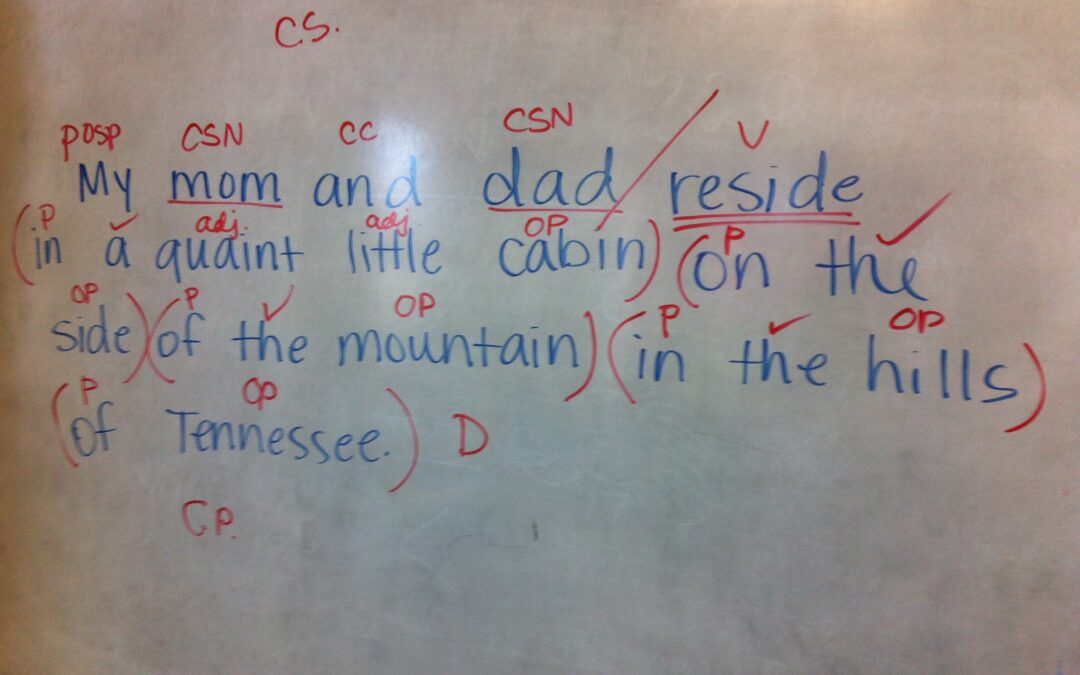 CS.
posp CSN CC CSN V
My mom and dad / reside
P ✓ adj. adj. OP P ✓
(in a quaint little cabin) (on the
OP P ✓ OP P ✓ OP
side) (of the mountain) (in the hills)
P OP
(of Tennessee.) D
CP.